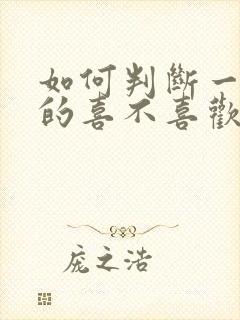 如何判斷一
的喜不喜歡
庞之浩